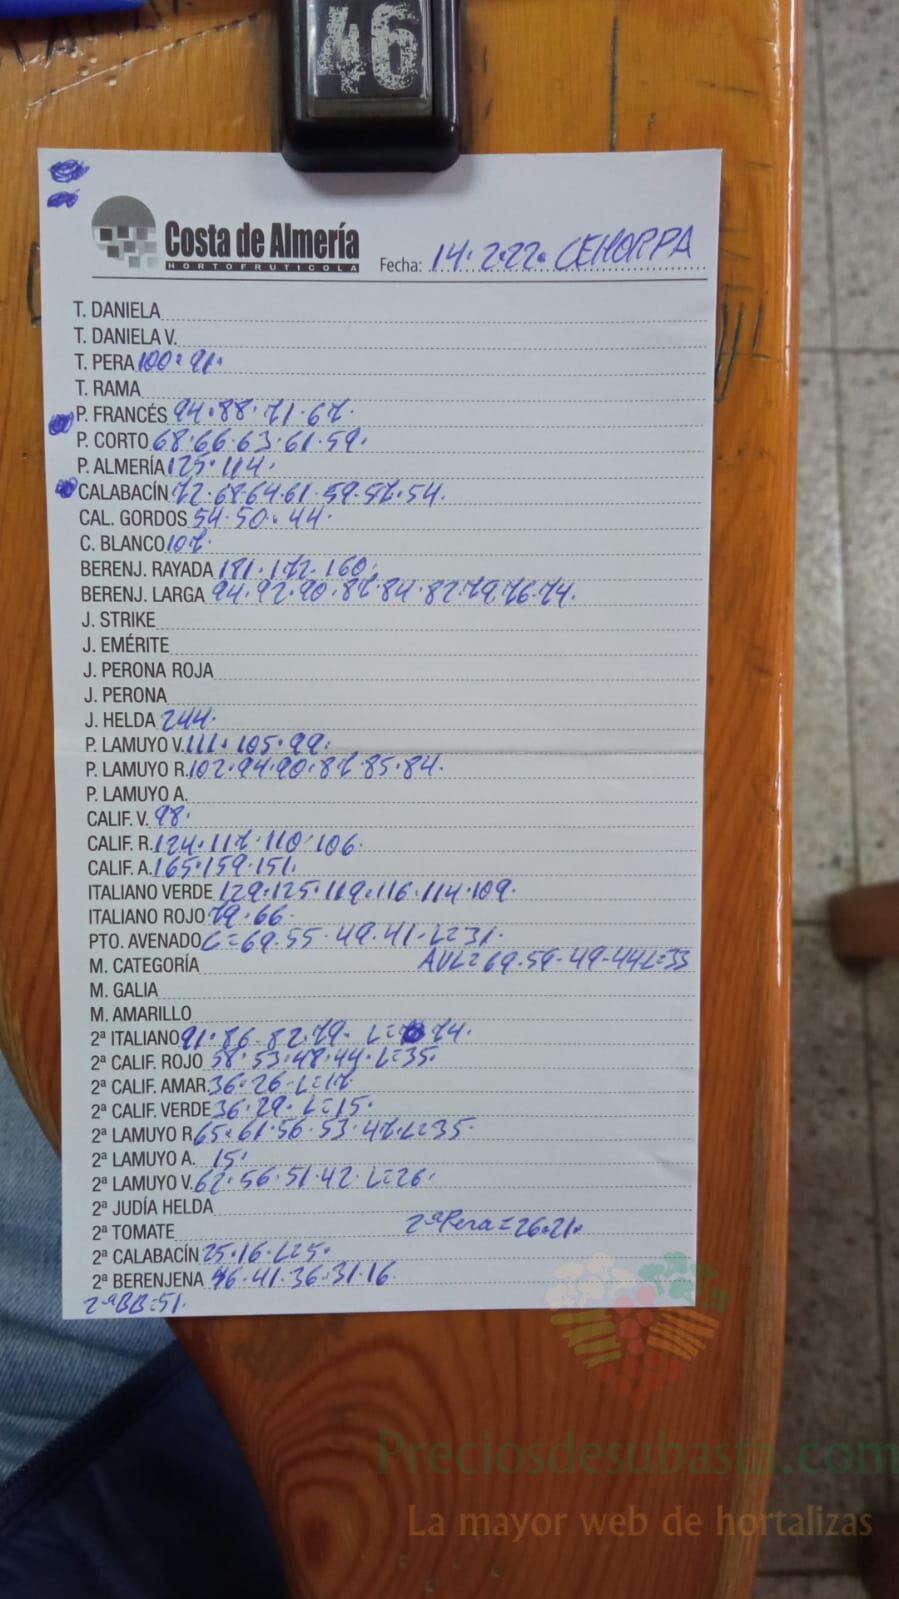 46
Costa de Almería
HORTOFRUTICOLA
Fecha: 14.2.22. CEHORPA
T. DANIELA
T. DANIELA V.
T. PERA 100.91.
T. RAMA
P. FRANCÉS 94.88.71.67.
P. CORTO 68.66.63.61.59.
P. ALMERÍA 125.114.
CALABACÍN 72.68.64.61.59.57.54.
CAL. GORDOS 54.50.44.
C. BLANCO 107.
BERENJ. RAYADA 181.172.160.
BERENJ. LARGA 94.92.90.87.84.82.79.76.74.
J. STRIKE
J. EMÉRITE
J. PERONA ROJA
J. PERONA
J. HELDA 244.
P. LAMUYO V. 111.105.99.
P. LAMUYO R. 102.94.90.87.85.84.
P. LAMUYO A.
CALIF. V. 98.
CALIF. R. 124.117.110.106.
CALIF. A. 165.159.151.
ITALIANO VERDE 129.125.119.116.114.109.
ITALIANO ROJO 79.66.
PTO. AVENADO C=69.55.49.41.L=31.
M. CATEGORÍA AVL=69.59.49.44L=33
M. GALIA
M. AMARILLO
2ª ITALIANO 91.86.82.79. L= 74.
2ª CALIF. ROJO 58.53.48.44.L=35.
2ª CALIF. AMAR. 36.26.L=17
2ª CALIF. VERDE 36.29. L=15.
2ª LAMUYO R. 65.61.56.53.47.L=35.
2ª LAMUYO A. 15.
2ª LAMUYO V. 62.56.51.42. L=26.
2ª JUDÍA HELDA
2ª TOMATE 2ªPera=26.21.
2ª CALABACÍN 25.16.L=5.
2ª BERENJENA 46.41.36.31.16.
2ªBB=51.
Preciosdesubasta.com
La mayor web de hortalizas